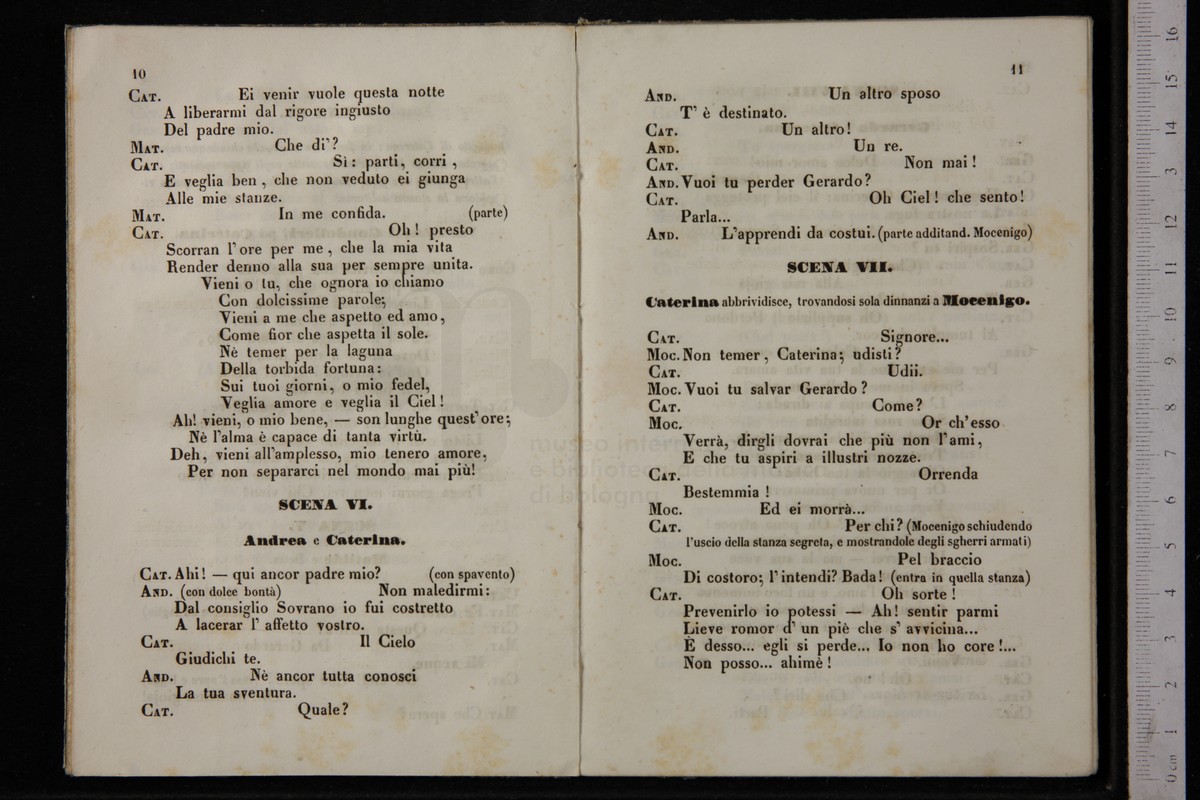 10
CAT. Ei venir vuole questa notte
A liberarmi dal rigore ingiusto
Del padre mio.
MAT. Che di'?
CAT. Sì: parti, corri,
E veglia ben, che non veduto ei giunga
Alle mie stanze.
MAT. In me confida. (parte)
CAT. Oh! presto
Scorran l'ore per me, che la mia vita
Render denno alla sua per sempre unita.
Vieni o tu, che ognora io chiamo
Con dolcissime parole;
Vieni a me che aspetto ed amo,
Come fior che aspetta il sole.
Nè temer per la laguna
Della torbida fortuna:
Sui tuoi giorni, o mio fedel,
Veglia amore e veglia il Ciel!
Ah! vieni, o mio bene, — son lunghe quest'ore;
Nè l'alma è capace di tanta virtù.
Deh, vieni all'amplesso, mio tenero amore,
Per non separarci nel mondo mai più!
SCENA VI.
Andrea e Caterina.
CAT. Ahi! — qui ancor padre mio? (con spavento)
AND. (con dolce bontà) Non maledirmi:
Dal consiglio Sovrano io fui costretto
A lacerar l'affetto vostro.
CAT. Il Cielo
Giudichi te.
AND. Nè ancor tutta conosci
La tua sventura.
CAT. Quale?
11
AND. Un altro sposo
T' è destinato.
CAT. Un altro!
AND. Un re.
CAT. Non mai!
AND. Vuoi tu perder Gerardo?
CAT. Oh Ciel! che sento!
Parla...
AND. L'apprendi da costui. (parte additand. Mocenigo)
SCENA VII.
Caterina abbrividisce, trovandosi sola dinnanzi a Mocenigo.
CAT. Signore...
MOC. Non temer, Caterina; udisti?
CAT. Udii.
MOC. Vuoi tu salvar Gerardo?
CAT. Come?
MOC. Or ch'esso
Verrà, dirgli dovrai che più non l'ami,
E che tu aspiri a illustri nozze.
CAT. Orrenda
Bestemmia!
MOC. Ed ei morrà...
CAT. Per chi? (Mocenigo schiudendo
l'uscio della stanza segreta, e mostrandole degli sgherri armati)
MOC. Pel braccio
Di costoro; l'intendi? Bada! (entra in quella stanza)
CAT. Oh sorte!
Prevenirlo io potessi — Ah! sentir parmi
Lieve romor d' un piè che s' avvicina...
È desso... egli si perde... Io non ho core!...
Non posso... ahimè!
museo internazionale
e biblioteca della musica
di bologna
0 cm 1 2 3 4 5 6 7 8 9 10 11 12 13 14 15 16